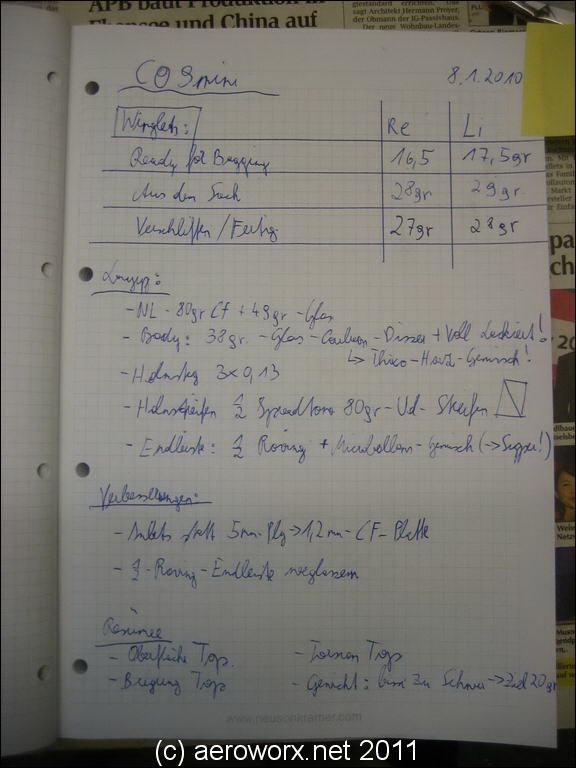 APB baut Produktion in
Ebensee und China auf
giestandard errichten. Das
sagt Architekt Hermann Proyer,
der Obmann der IG-Passivhaus.
Der neue Wohnbau-Landes-
CO9mini 8.1.2010
Winglets: Re Li
Ready for Bagging 16,5 17,5gr
Aus dem Sack 28gr 29gr
Verschliffen / Fertig 27gr 28gr
Layup:
- NL - 80gr Cf + 49gr - Glas
- Body: 38gr. - Glas - - + Voll Lackiert!
↳ Thixo-Harz-Gemisch!
- Holmsteg 3x0,13
- Holmstreifen 1/2 Spreadtow 80gr-Ud-Streifen
- Endleiste: 1/2 Roving + Microballons-Gemisch (→Supper!)
Verbesserungen:
- statt 5mm-Ply→1,2mm-CF-Platte
- 1/2-Roving-Endleiste weglassen
Resümee
- Oberfläche Top. - Torsion Top
- Biegung Top - Gewicht: bissi zu Schwer→Ziel 20gr
www.neusonkramer.com
(c) aeroworx.net 2011